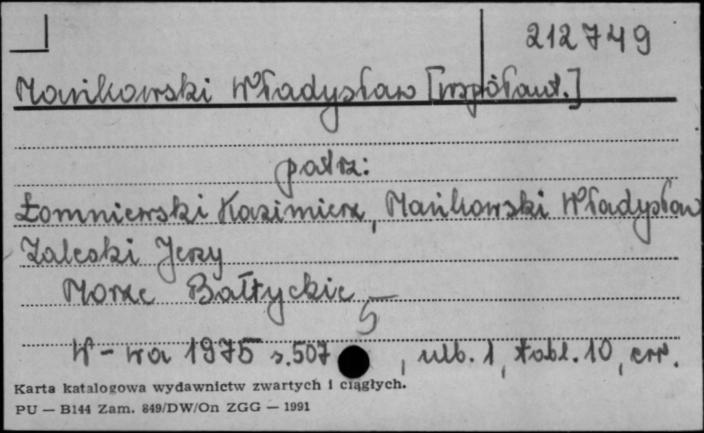 212749
Mańkowski Władysław [współaut.]
patrz:
Łomniewski Kazimierz, Mańkowski Władysław
Zaleski Jerzy
Morze Bałtyckie
5
W-wa 1975 s.507, ulb. 1, tabl. 10, err.
Karta katalogowa wydawnictw zwartych i ciągłych.
PU — B144 Zam. 849/DW/On ZGG — 1991